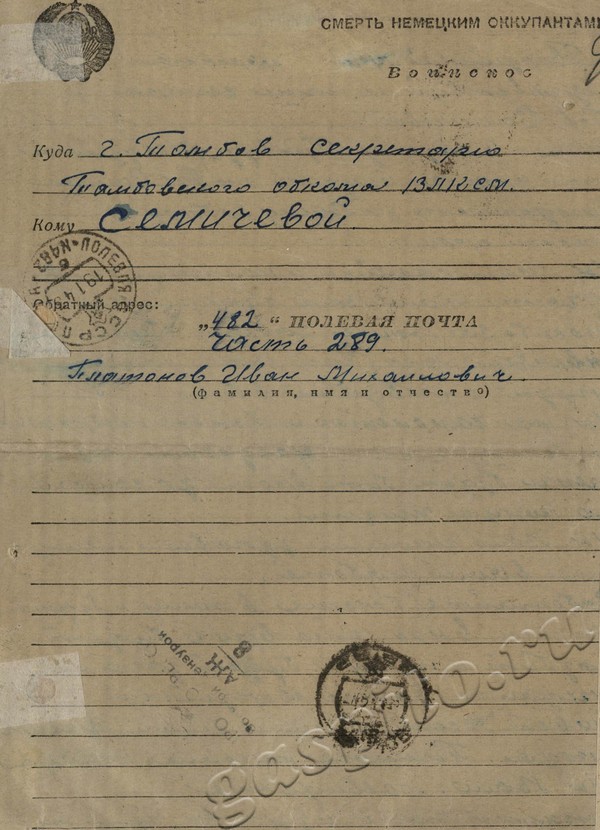 СМЕРТЬ НЕМЕЦКИМ ОККУПАНТАМ
Воинское
Куда г. Тамбов секретарю
Тамбовского обкома ВЛКСМ.
Кому СЕМИЧЕВОЙ
ПОЛЕВАЯ
Обратный адрес:
„482“ ПОЛЕВАЯ ПОЧТА
Часть 289.
Платонов Иван Михайлович.
(фамилия, имя и отчество)
gaspito.ru